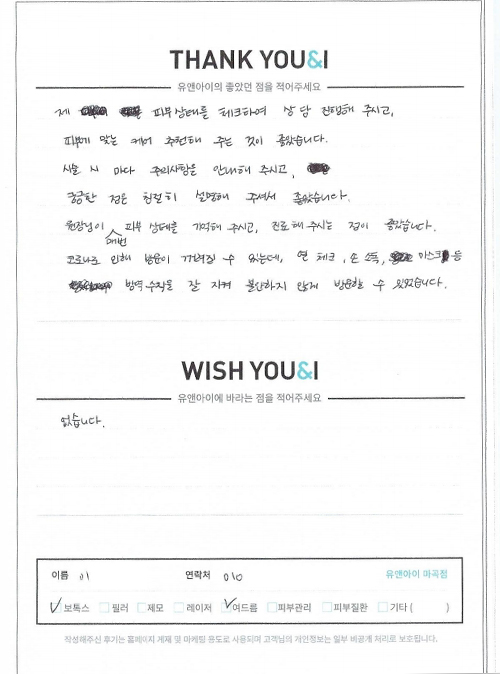 THANK YOU&I
유앤아이의 좋았던 점을 적어주세요
제 피부상태를 체크하여 상담 진행해 주시고,
피부에 맞는 케어 추천해 주는 것이 좋았습니다.
시술 시 마다 주의사항을 안내해 주시고,
궁금한 점은 친절히 설명해 주셔서 좋았습니다.
원장님이 매번 피부 상태를 기억해 주시고, 진료해 주시는 점이 좋았습니다.
코로나로 인해 방문이 꺼려질 수 있는데, 열 체크, 손 소독, 마스크 등
방역수칙을 잘 지켜 불안하지 않게 방문할 수 있었습니다.
WISH YOU&I
유앤아이에 바라는 점을 적어주세요
없습니다.
이름 이 연락처 010 유앤아이 마곡점
보톡스 필러 제모 레이저 여드름 피부관리 피부질환 기타 ( )
작성해주신 후기는 홈페이지 게재 및 마케팅 용도로 사용되며 고객님의 개인정보는 일부 비공개 처리로 보호됩니다.